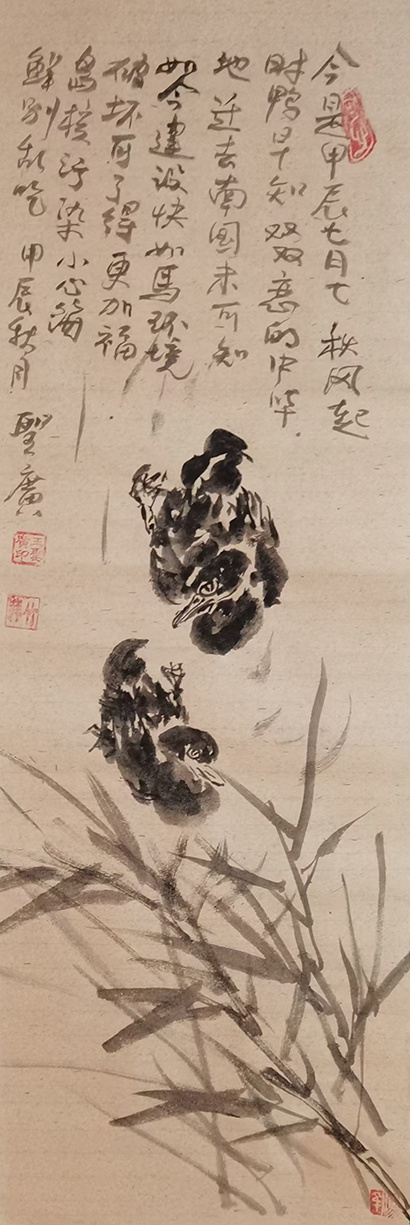 今是甲辰七月七 秋风起
时鸭早知双双恋的中华
地迁去南国未可知
如今建设快如馬环境
破坏可了得更加福
島核污染小心海
鲜别乱吃 甲辰秋月 聖廣